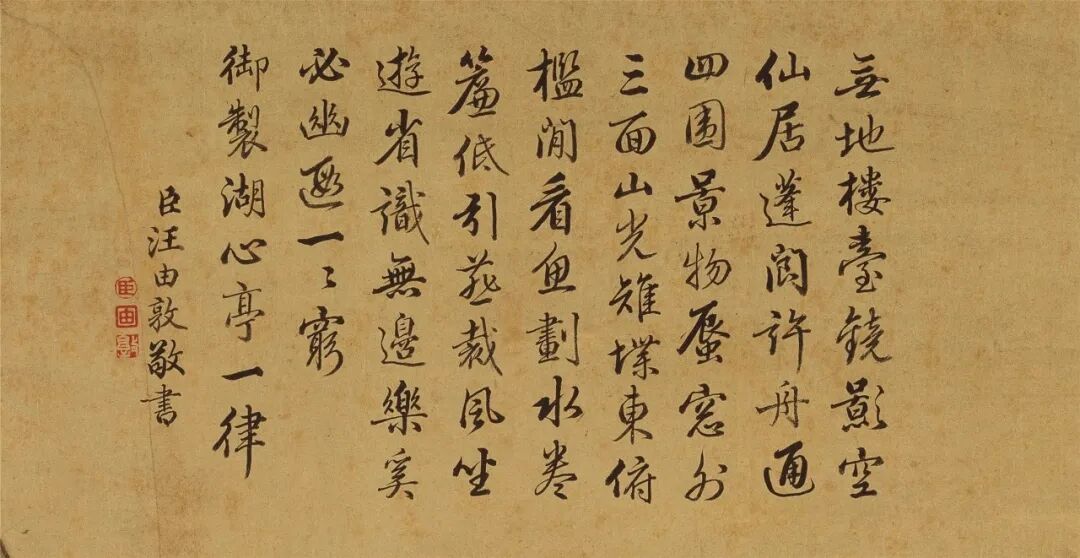 無地樓臺鏡影空
仙居蓬閬許舟通
四圍景物蜃窓外
三面山光雉堞東俯
檻閒看魚劃水卷
簾低引燕裁風坐
遊省識無邊樂奚
必幽遐一〻窮
御製湖心亭一律
臣汪由敦敬書
臣由敦